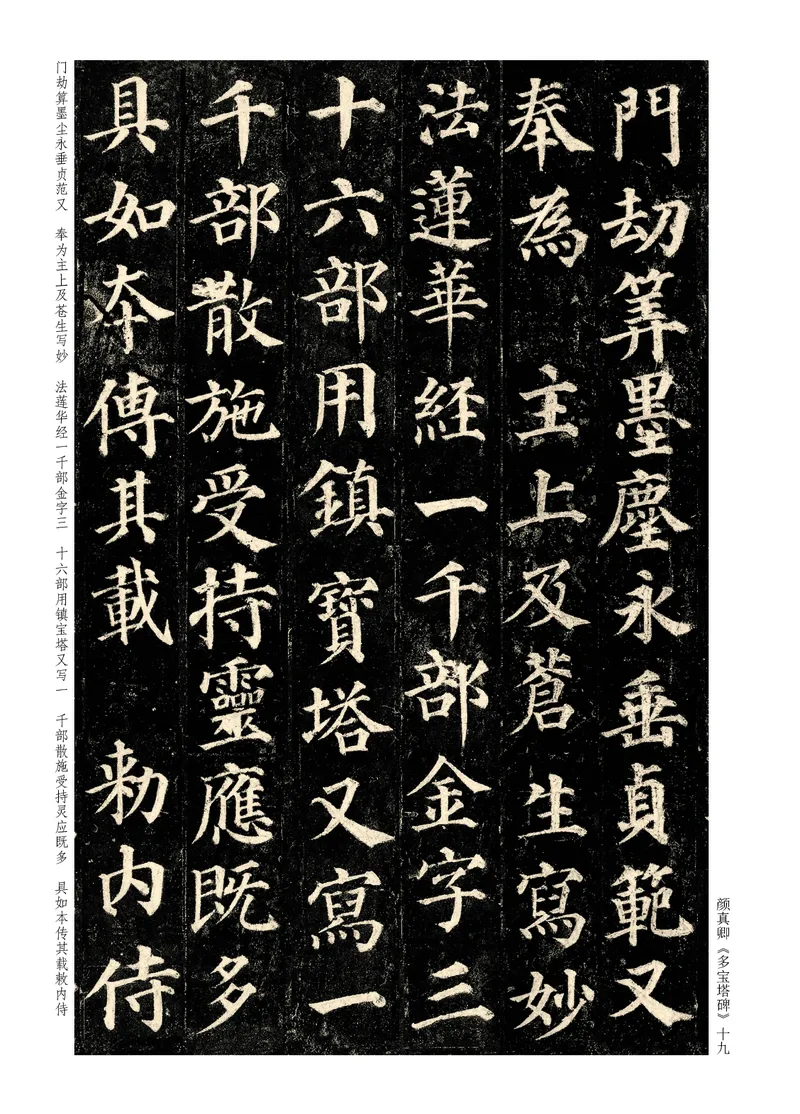 門劫筭墨塵永垂貞範又
奉為 主上及蒼生寫妙
法蓮華經一千部金字三
十六部用鎮寶塔又寫一
千部散施受持靈應既多
具如夲傳其載 勑内侍
门劫算墨尘永垂贞范又 奉为主上及苍生写妙 法莲华经一千部金字三 十六部用镇宝塔又写一 千部散施受持灵应既多 具如本传其载敕内侍
颜真卿《多宝塔碑》十九